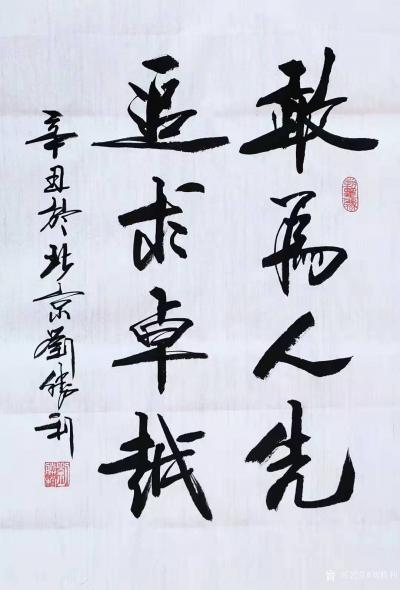 敢為人先
追求卓越
辛丑於北京劉勝利